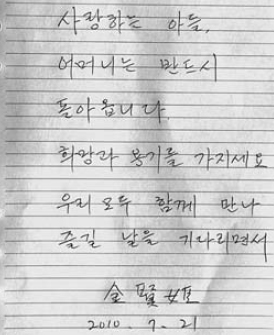 사랑하는 아들,
어머니는 반드시
돌아옵니다.
희망과 용기를 가지세요
우리 모두 함께 만나
즐길 날을 기다리면서
金賢姬
2010. 7. 21